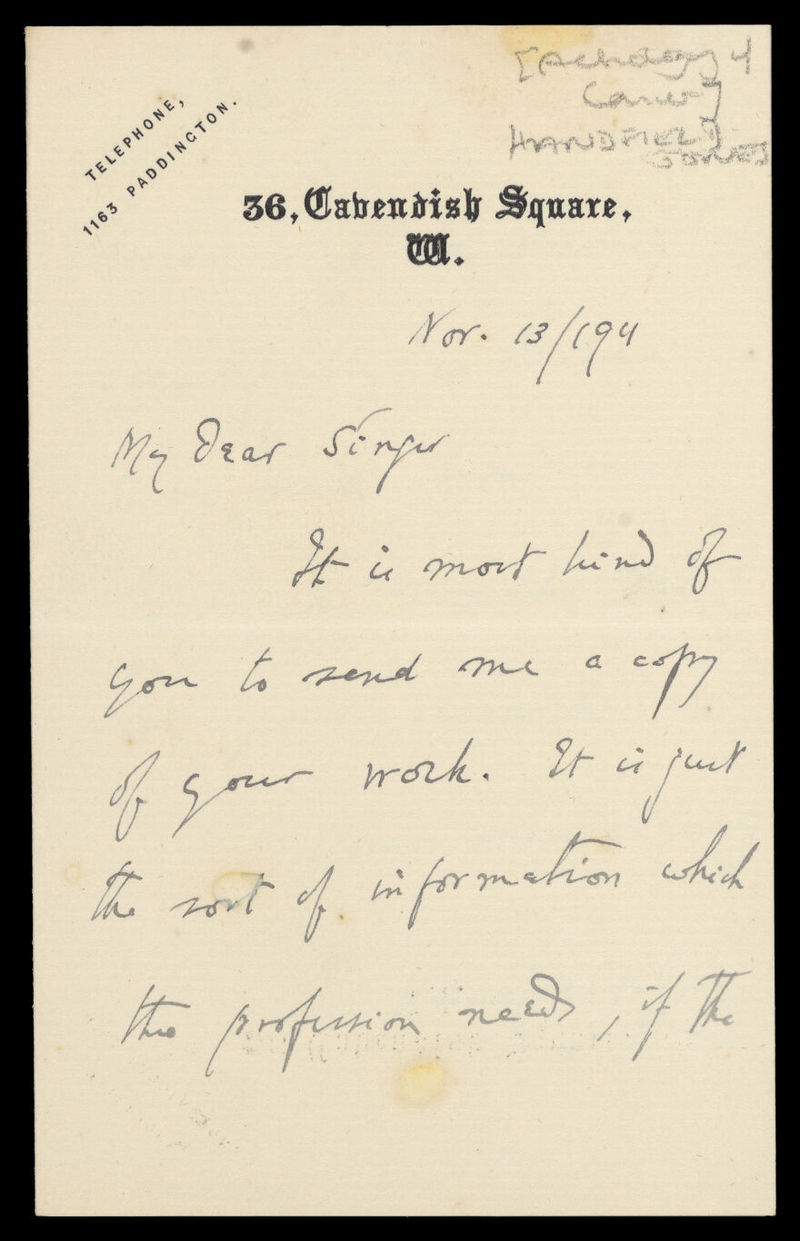 [Pathology of
Cancer]
HANDFIELD
JONES
TELEPHONE,
1163 PADDINGTON.
36, Cavendish Square,
W.
Nov. 13/1911
My Dear Singer
It is most kind of
you to send me a copy
of your work. It is just
the sort of information which
the profession needs, if the